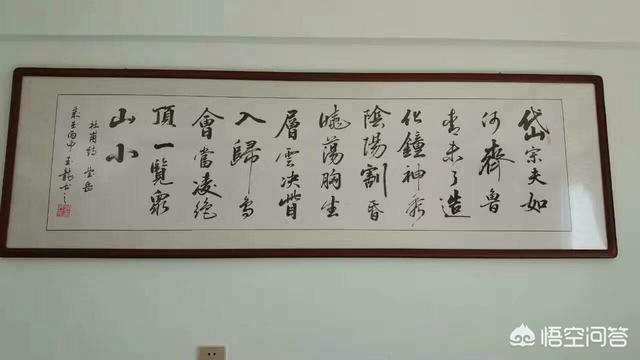 岱宗夫如
何齊魯
青未了造
化鐘神秀
陰陽割昏
曉蕩胸生
層雲決眥
入歸鳥
會當凌絕
頂一覽眾
山小
杜甫詩 望岳
丙申
悟空问答